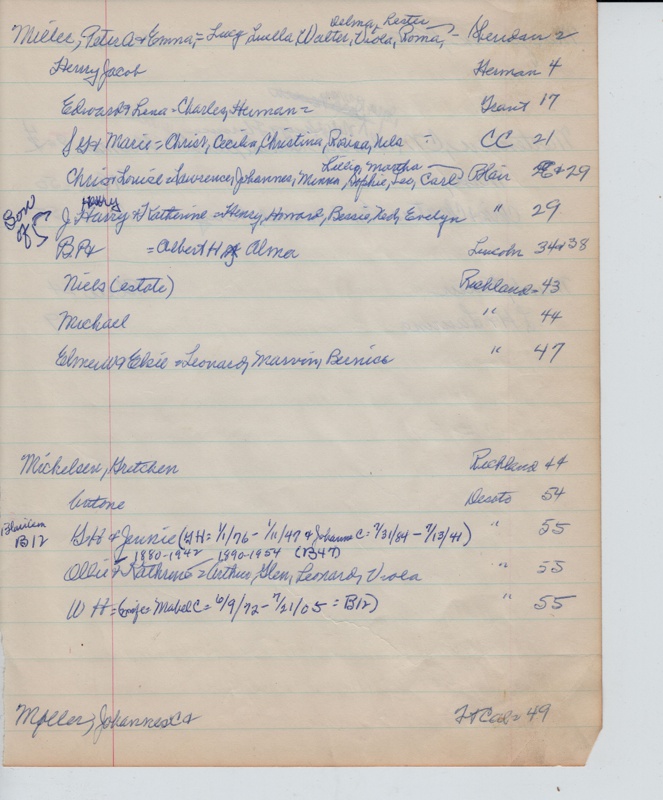 Delma, Lester
Miller, Peter A & Emma, = Lucy, Luella, Walter, Viola, Roma, - Sheridan 2
Henry Jacob Herman 4
Edward & Lena = Charles, Herman = Grant 17
& Marie = Christ, Cecilia, Christina, Rosina, Nels - CC 21
Lillie, Martha
Chris & Louise = Lawrence, Johannes, Minna, Sophie, Leo, Carl Blair & 29
Son of 5
Harry
J Harry & Katherine = Henry, Howard, Bessie, Ked, Evelyn " 29
B.P. & = Albert H & Alma Lincoln 34 & 38
Niels (estate) Richland - 43
Michael " 44
Elmer W & Elsie = Leonard, Marvin, Bernice " 47
Mickelsen, Gretchen Richland 44
Antone Desoto 54
Blair Cem B12
G H & Jennie (GH = 1/1/76 - 1/11/47 & Johanne C = 7/31/84 - 7/13/41) " 55
1880-1942 1890-1954 (B47)
Ollie & Kathrine = Arthur, Glen, Leonard, Viola " 55
W H = Mabel C = 6/9/72 - 7/21/05 = B12) " 55
Moller, Johannes C & Ft Cal = 49